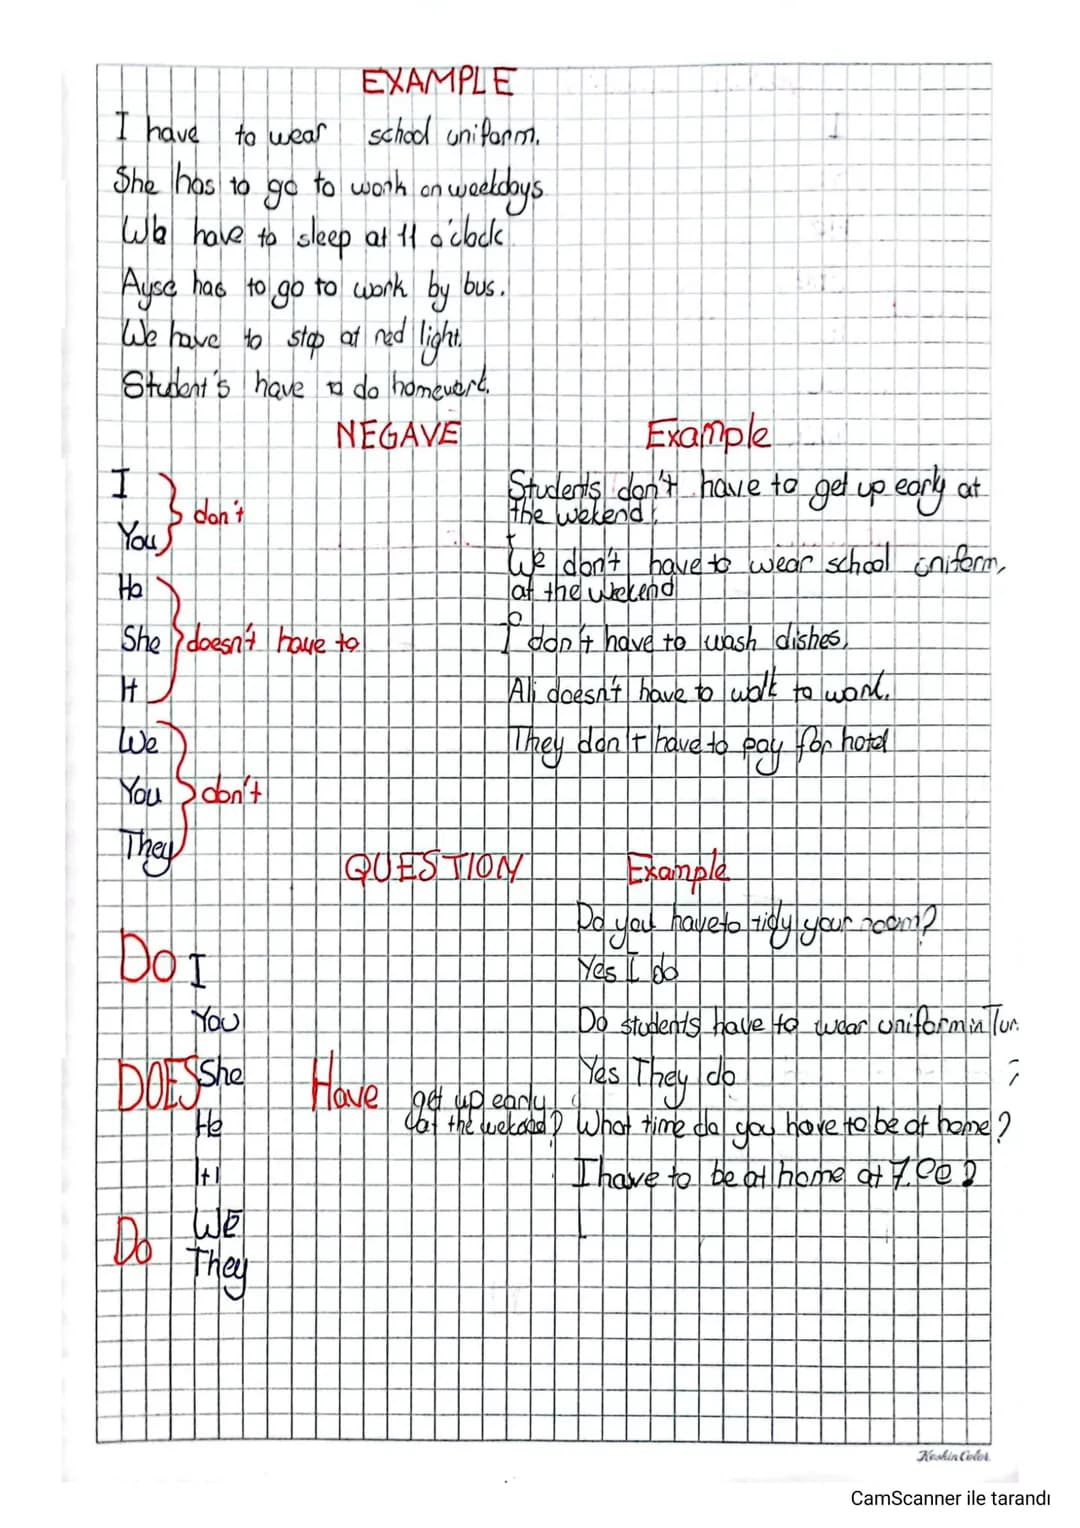 EXAMPLE
I have to wear school uniform.
She has to go to work on weekdays
We have to sleep at 11 o'clock
Ayşe has to go to work by bus.
We have to stop at red light.
Student's have to do homework.
NEGAVE
Example
I
You
don't
He
She
It
doesn't have to
We
You
They
don't
Students don't have to get up early at
the wekend.
We don't have to wear school uniform,
at the wekend
I don't have to wash dishes,
Ali doesn't have to walk to work.
They don't have to pay for hotel
QUESTION
Example
Do I
You
DOES She
He
It
Do WE
They
Have
get up early
at the wekend?
Do you have to tidy your room?
Yes I do
Do students have to wear uniform in Tur.
?
Yes They do
What time do you have to be at home?
I have to be at home at 7.00
Keskin Color
CamScanner ile tarandı